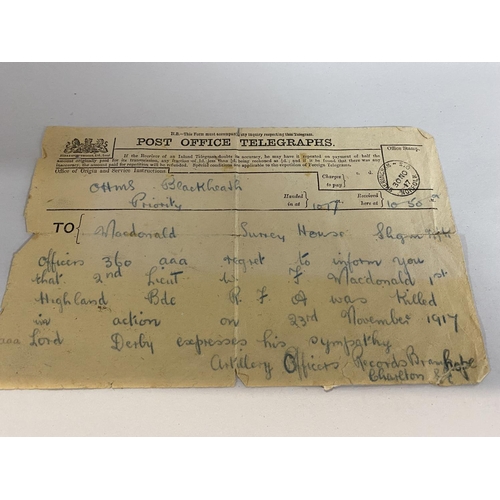 N.B.—This Form must accompany any inquiry respecting this Telegram.
POST OFFICE TELEGRAPHS.
If the Receiver of an Inland Telegram doubts its accuracy, he may have it repeated on payment of half the
amount originally paid for its transmission, any fraction of 1d. less than ½d. being reckoned as ½d.; and if it be found that there was
any inaccuracy, the amount paid for repetition will be refunded. Special conditions are applicable to the repetition of Foreign Telegrams.
Office of Origin and Service Instructions.
Charges to pay
Office Stamp.
OHMS Blackheath
Priority
Handed in at
Received here at 10 50
30 NO 17
TO Macdonald Surrey House
Officers 360 aaa regret to inform you
that 2nd Lieut F Macdonald 1st
Highland Bde R F A was Killed
in action on 23rd November 1917
aaa Lord Derby expresses his sympathy
Artillery Officers Records
Charlton